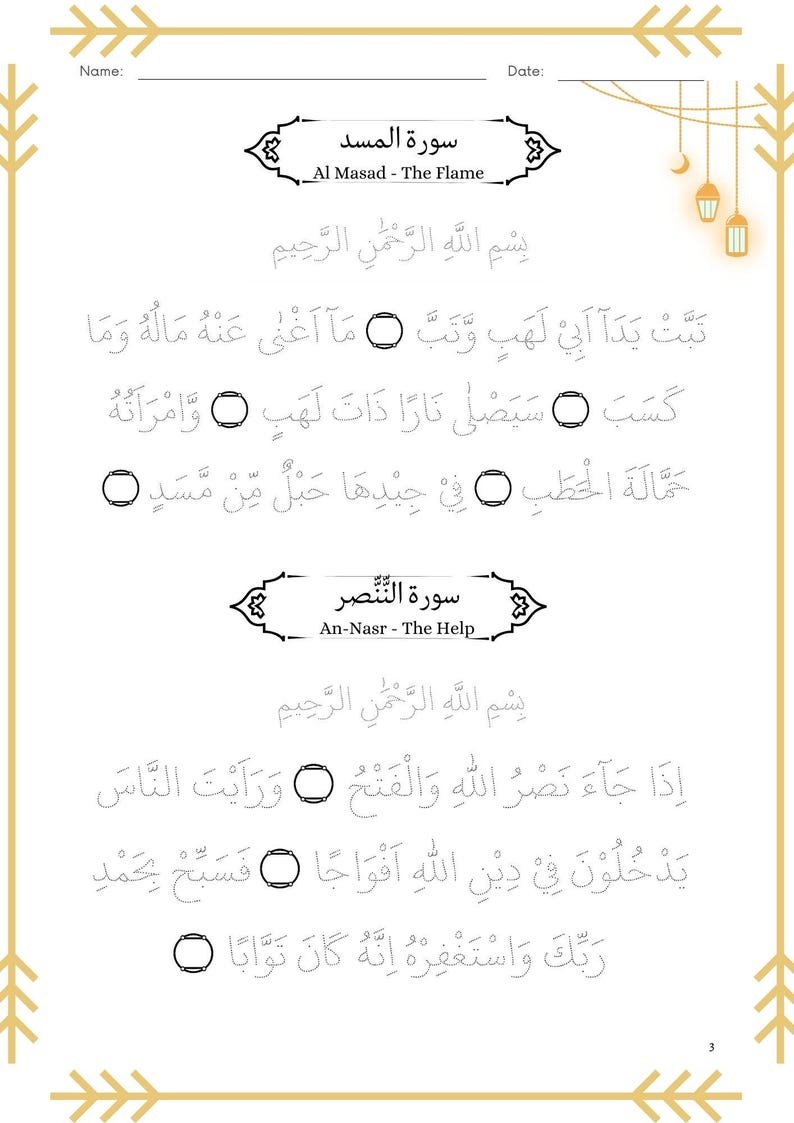 Name: Date:
سورة المسد
Al Masad - The Flame
بِسْمِ اللَّهِ الرَّحْمَٰنِ الرَّحِيمِ
تَبَّتْ يَدَآ اَبِيْ لَهَبٍ وَّتَبَّ مَآ اَغْنٰى عَنْهُ مَالُهُ وَمَا
كَسَبَ سَيَصْلٰى نَارًا ذَاتَ لَهَبٍ وَّامْرَاَتُهُ
حَمَّالَةَ الْحَطَبِ فِيْ جِيْدِهَا حَبْلٌ مِّنْ مَّسَدٍ
سورة النَّنَّصر
An-Nasr - The Help
بِسْمِ اللَّهِ الرَّحْمَٰنِ الرَّحِيمِ
اِذَا جَآءَ نَصْرُ اللّٰهِ وَالْفَتْحُ وَرَاَيْتَ النَّاسَ
يَدْخُلُوْنَ فِيْ دِيْنِ اللّٰهِ اَفْوَاجًا فَسَبِّحْ بِحَمْدِ
رَبِّكَ وَاسْتَغْفِرْهُ اِنَّهُ كَانَ تَوَّابًا
3